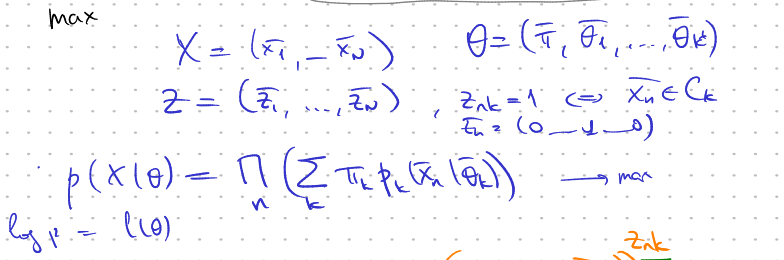 max
X = (x̄₁, _ x̄_N)    θ = (π̄, θ̄₁, ..., θ̄_K)
Z = (z̄₁, ..., z̄_N) , z_nk = 1 ⇔ x̄_n ∈ C_k
z̄_n = (0 _ 1 _ 0)
p(X|θ) = ∏_n (∑_k π_k p_k(x̄_n|θ̄_k)) → max
log p = l(θ)
z_nk